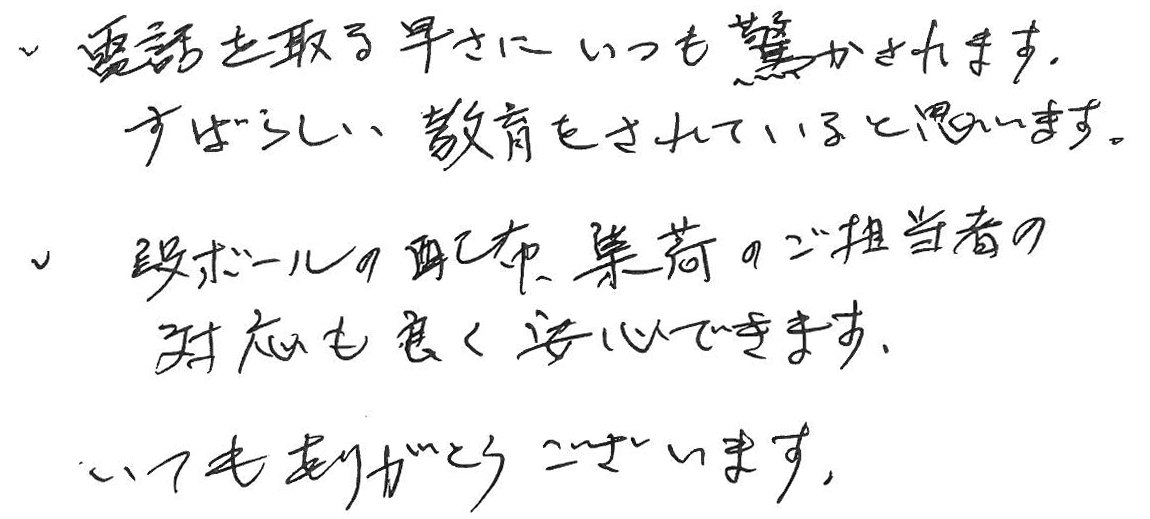 ✓ 電話を取る早さにいつも驚かされます.
すばらしい教育をされていると思います。
✓ 段ボールの配布、集荷のご担当者の
対応も良く安心できます.
いつもありがとうございます.